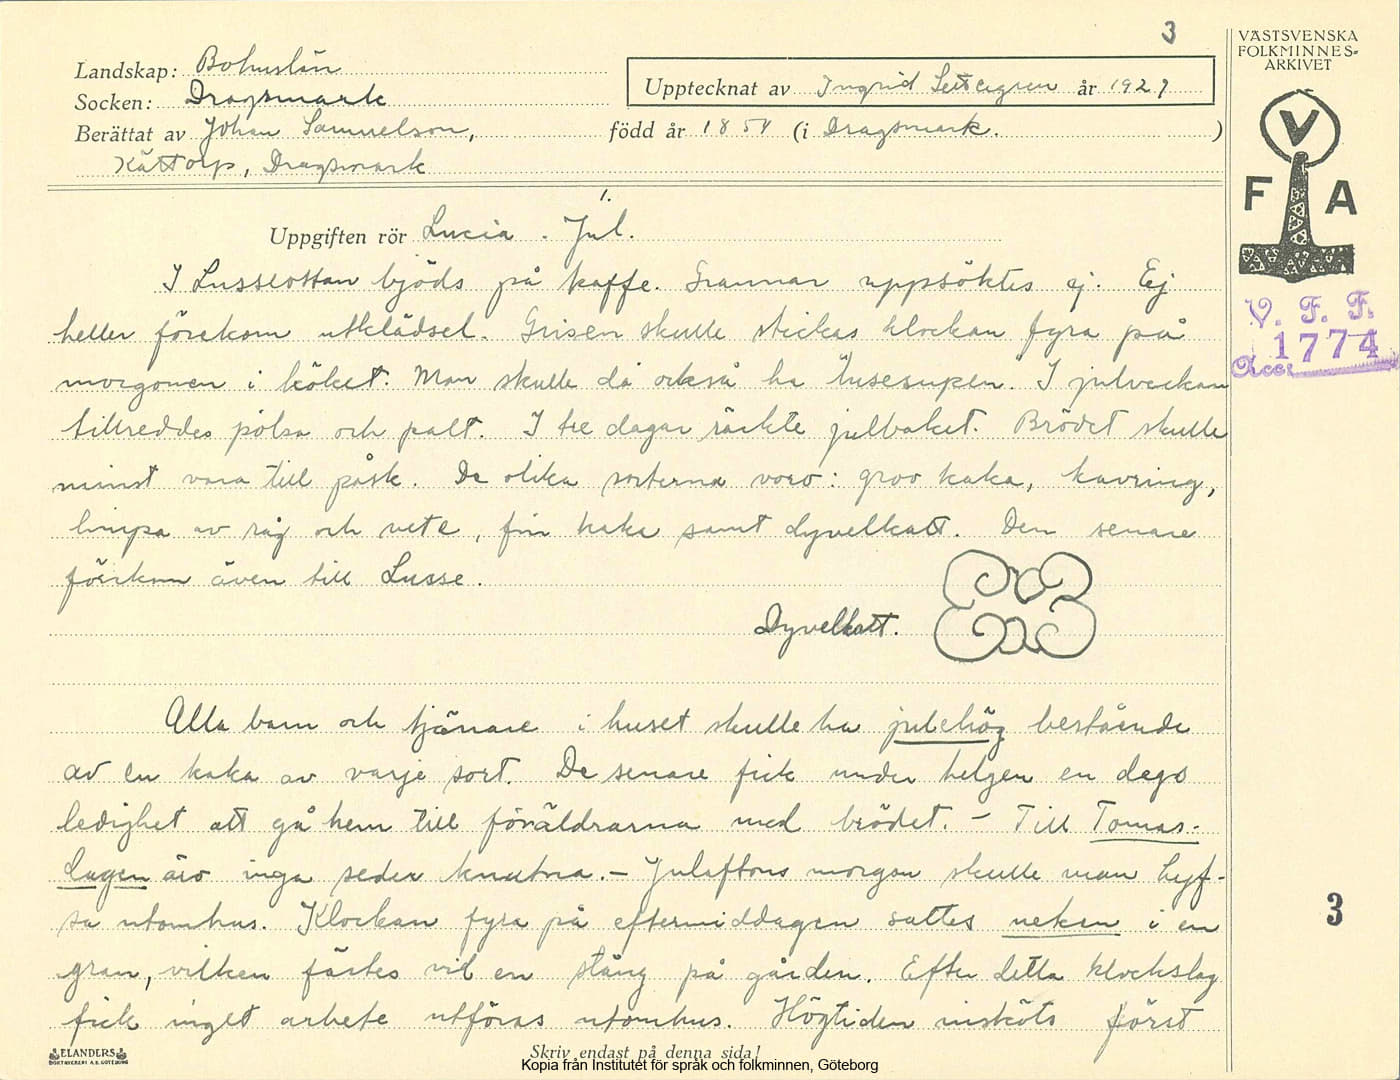 3
VÄSTSVENSKA
FOLKMINNES-
ARKIVET
V
F A
V. F. F.
Acc. 1774
Landskap: Bohuslän
Socken: Dragsmark
Upptecknat av Ingrid år 1927
Berättat av Johan Samuelson, född år 1854 (i Dragsmark.)
Kättorp, Dragsmark
1.
Uppgiften rör Lucia. Jul.
I Lusseottan bjöds på kaffe. Grannar uppsöktes ej. Ej
heller förekom utklädsel. Grisen skulle stickas klockan fyra på
morgonen i köket. Man skulle då också ha "lusesupen. I julveckan
tillreddes pölsa och palt. I tre dagar räckte julbaket. Brödet skulle
minst vara till påsk. De olika sorterna voro: grov kaka, kavring,
limpa av råg och vete, fin kaka samt dyvelkatt. Den senare
förekom även till Lusse.
Dyvelkatt.
Alla barn och tjänare i huset skulle ha julehög bestående
av en kaka av varje sort. De senare fick under helgen en dags
ledighet att gå hem till föräldrarna med brödet. – Till Tomas-
dagen äro inga seder knutna. – Julaftons morgon skulle man hyf-
sa utomhus. Klockan fyra på eftermiddagen sattes neken i en
gran, vilken fästes vid en stång på gården. Efter detta klockslag
fick inget arbete utföras utomhus. Högtiden insköts först
3
ELANDERS
BOKTRYCKERI A.B. GÖTEBORG
Skriv endast på denna sida!
Kopia från Institutet för språk och folkminnen, Göteborg